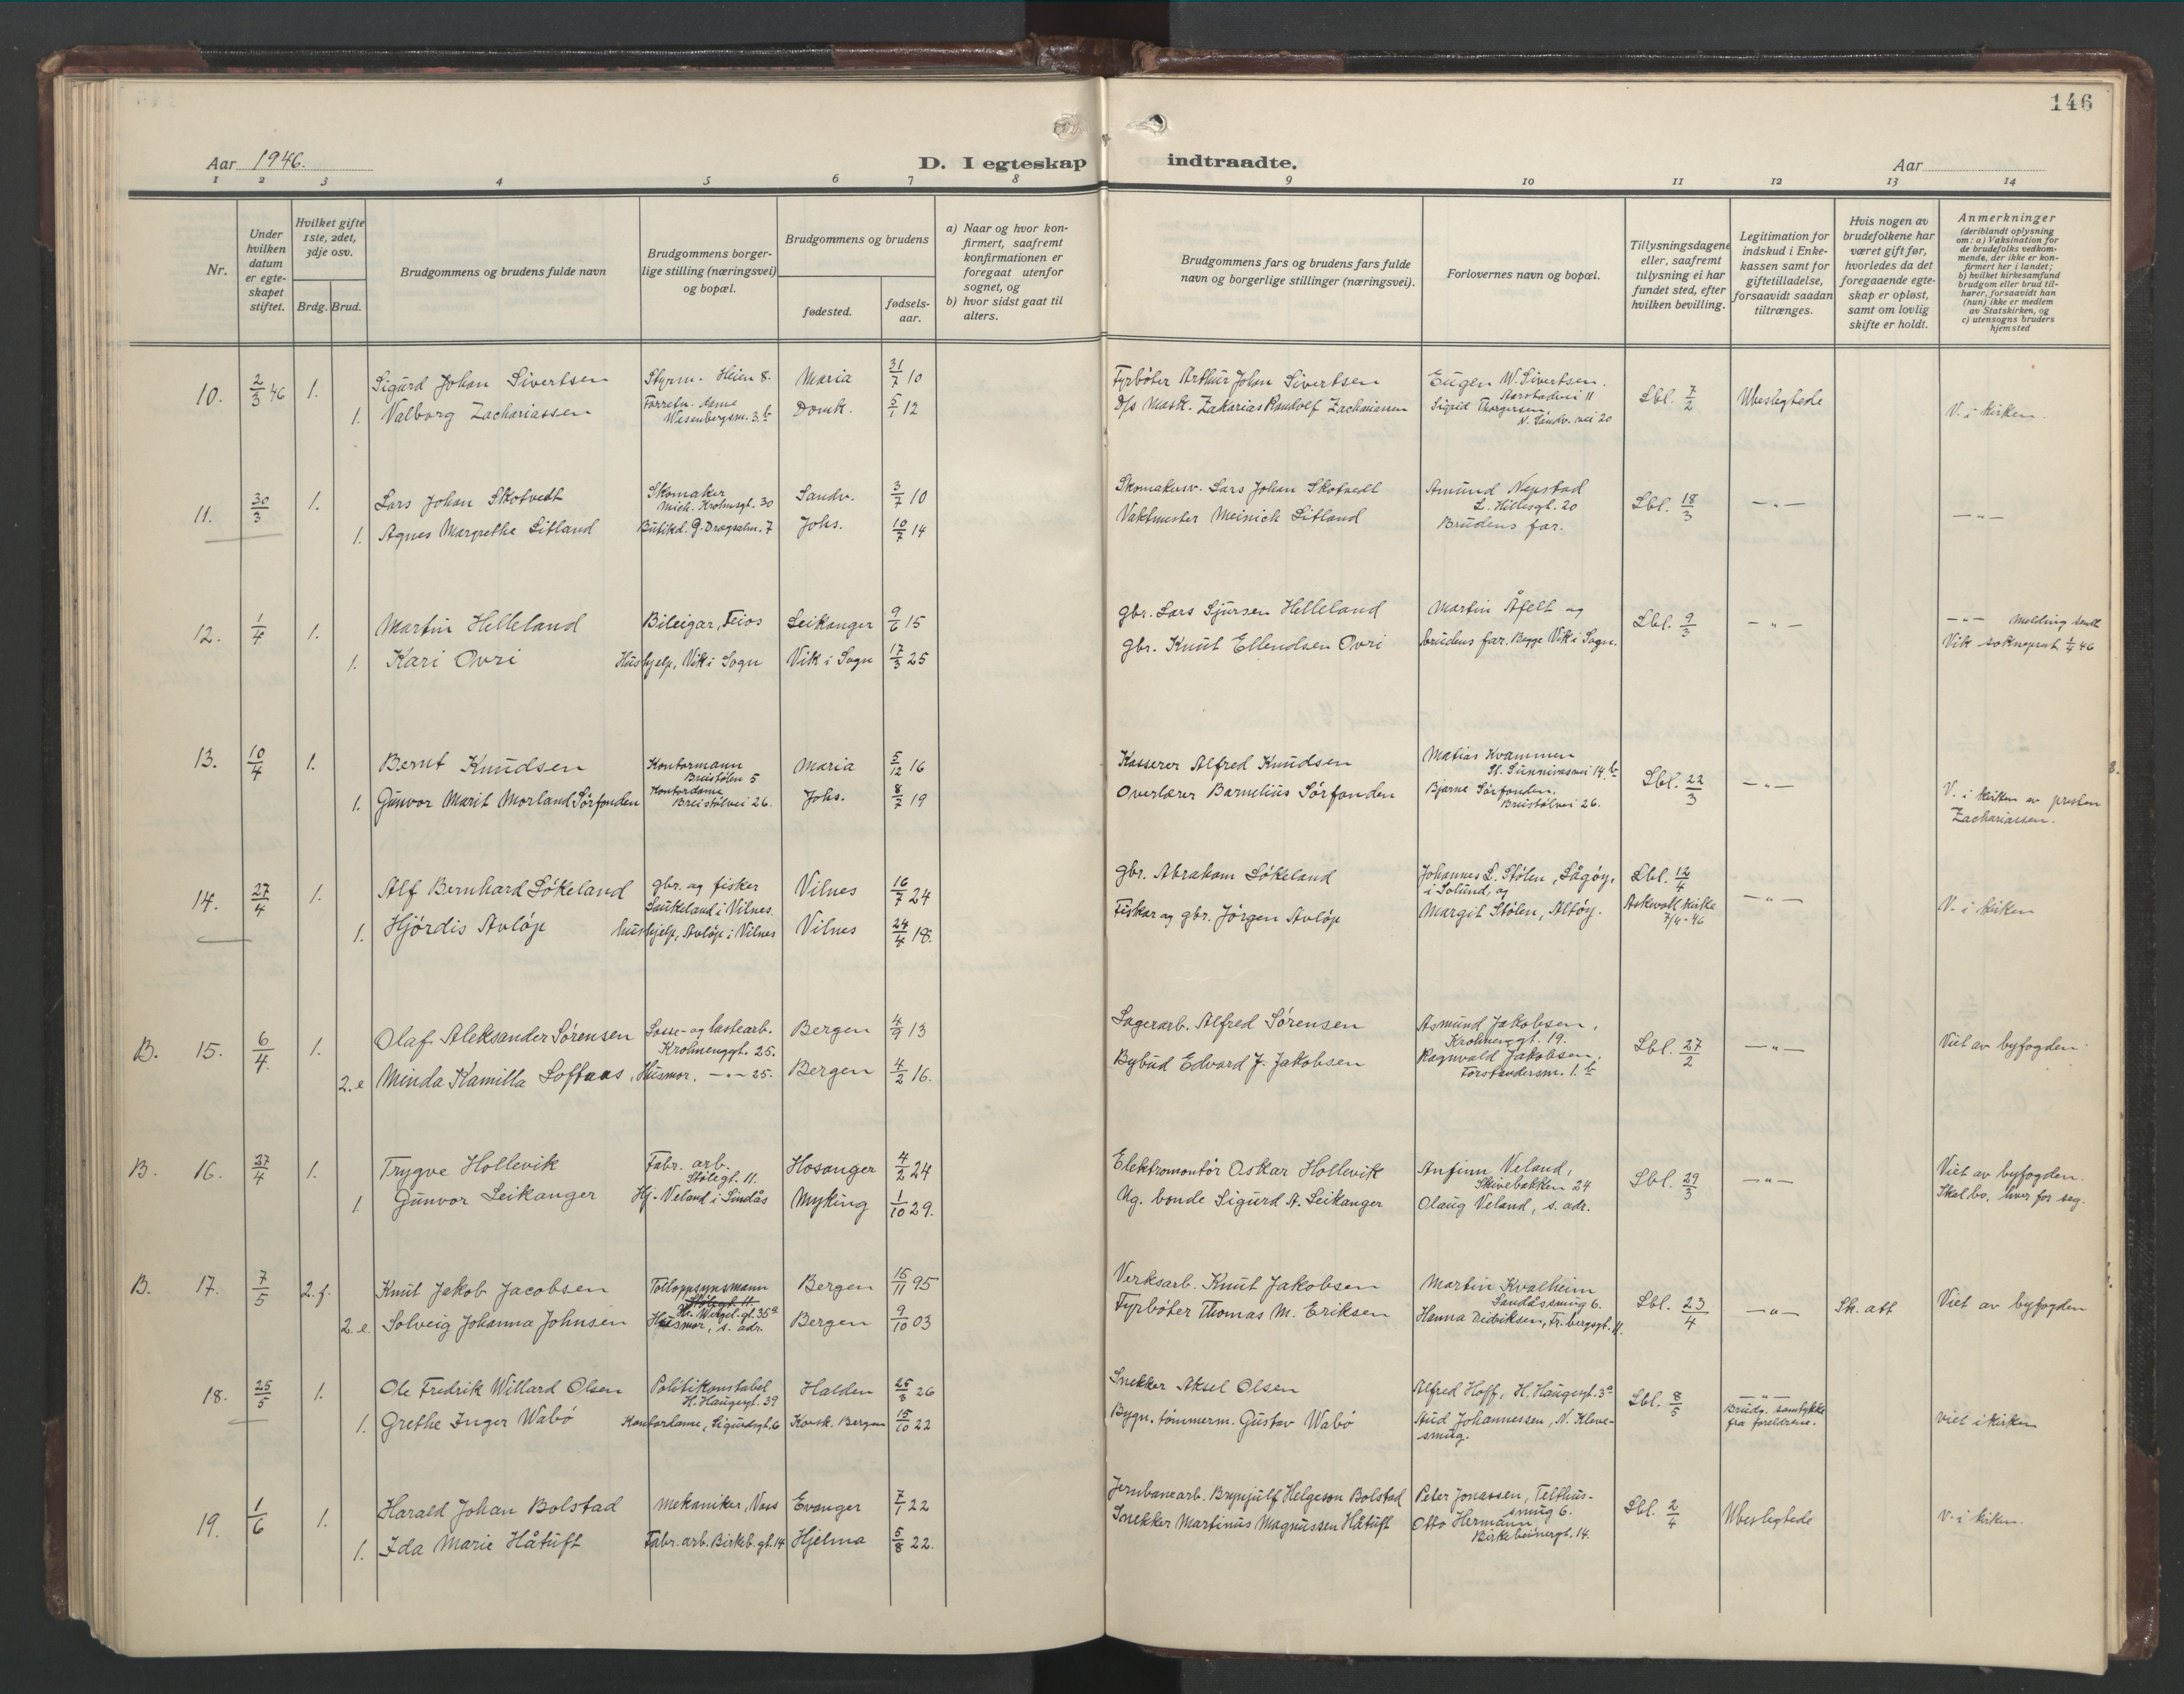 146
Aar 1946.
D. I egteskap indtraadte.
Aar
1 2 3 4 5 6 7 8 9 10 11 12 13 14
Nr.
Under hvilken datum er egte-skapet stiftet.
Hvilket gifte 1ste, 2det, 3dje osv.
Brdg. Brud.
Brudgommens og brudens fulde navn
Brudgommens borger-lige stilling (næringsvei) og bopæl.
Brudgommens og brudens
fødested.
fødsels-aar.
a) Naar og hvor kon-firmert, saafremt konfirmationen er foregaat utenfor sognet, og
b) hvor sidst gaat til alters.
Brudgommens fars og brudens fars fulde navn og borgerlige stillinger (næringsvei).
Forlovernes navn og bopæl.
Tillysningsdagene eller, saafremt tillysning ei har fundet sted, efter hvilken bevilling.
Legitimation for indskud i Enke-kassen samt for giftetilladelse, forsaavidt saadan tiltrænges.
Hvis nogen av brudefolkene har været gift før, hvorledes da det foregaaende egte-skap er opløst, samt om lovlig skifte er holdt.
Anmerkninger (deriblandt oplysning om: a) Vaksination for de brudefolks vedkom-mende, der ikke er kon-firmert her i landet; b) hvilket kirkesamfund brudgom eller brud til-hører, forsaavidt han (hun) ikke er medlem av Statskirken, og c) utensogns bruders hjemsted
10. 2/3 46 1. Sigurd Johan Sivertsen Styrm. Heien 8. Maria 31/7 10 Fyrbøter Arthur Johan Sivertsen Eugen W. Sivertsen. Aarstadvei 11 Lbl. 7/2 Ubeslegtede
1. Valborg Zachariassen Forretn. dame Wesenbergsm. 3 b Domk. 5/1 12 D/s Mask. Zakarias Randolf Zachariassen Sigrid Thorgersen, N. Sandv. vei 20 V. i kirken.
11. 30/3 1. Lars Johan Skotvedt Skomaker Mich. Krohnsgt. 30 Sandv. 3/7 10 Skomakersv. Lars Johan Skotvedt Amund Nepstad L. Hillesgt. 20 Lbl. 18/3 —"—
1. Agnes Margrethe Litland Butikd. G. Dragesalm. 7 Johs. 10/7 14 Vaktmester Meinich Litland Brudens far. —"—
12. 1/4 1. Martin Helleland Bileigar, Feios Leikanger 9/6 15 gbr. Lars Sjursen Helleland Martin Åfelt og Lbl. 9/3 —"— —"— Melding sendt
1. Kari Ovri Hushjelp, Vik i Sogn Vik i Sogn 17/3 25 gbr. Knut Ellendsen Ovri brudens far. Begge Vik i Sogn. Vik soknepret 1/4 46
13. 10/4 1. Bernt Knudsen Kontormann Breistølen 5 Maria 5/12 16 Kasserer Alfred Knudsen Matias Kvammen St. Sunnivasvei 14 b Lbl. 22/3 —"—
1. Gunvor Marit Morland Sørfonden Kontordame Breistølvei 26. Johs. 8/7 19 Overlærer Barnelius Sørfonden Bjarne Sørfonden. Breistølvei 26. V. i kirken av presten Zachariassen.
14. 27/4 1. Alf Bernhard Løkeland gbr. og fisker Laukeland i Vilnes. Vilnes 16/7 24 gbr. Abraham Løkeland Johannes L. Stølen, Lågøy, i Solund, og Lbl. 12/4 —"—
1. Hjørdis Avløp hushjelp, Avløp i Vilnes Vilnes 24/4 18. Fiskar og gbr. Jørgen Avløp Margit Stølen, Altøy. Askvoll kirke 7/4-46 V. i kirken
B. 15. 6/4. 1. Olaf Aleksander Sørensen Losse- og lastearb. Krohnenggt. 25. Bergen 4/9 13 Lagerarb. Alfred Sørensen Asmund Jakobsen, Krohnenggt. 19. Lbl. 27/2 —"— Viet av byfogden
2.e Minda Kamilla Loftaas, Husmor. —"— 25. Bergen 4/2 16. Bybud Edvard J. Jakobsen Ragnvald Jakobsen. Forstandersm. 1. b
B. 16. 27/4 1. Trygve Hollevik Fabr. arb. Stølegt. 11. Hosanger 4/2 24 Elektromontør Oskar Hollevik Anfinn Veland, Skivebakken 24 Lbl. 29/3 —"— Viet av byfogden.
1. Gunvor Leikanger Hj. Veland i Lindås Myking 1/10 29. Ug. bonde Sigurd A. Leikanger Olaug Veland, s. adr. Skal bo. hver for seg.
B. 17. 7/5 2.f. Knut Jakob Jacobsen Tolloppsynsmann Stølegt. 11. H. Wergel. gt. 35 a Bergen 15/11 95 Verksarb. Knut Jakobsen Martin Kvalheim Sandåssmug 6. Lbl. 23/4 —"— Sk. att Viet av byfogden
2.e. Solveig Johanna Johnsen Husmor, s. adr. Bergen 9/10 03 Fyrbøter Thomas M. Eriksen Hanna Didriksen, Fr. bergsgt. 11.
18. 25/5 1. Ole Fredrik Willard Olsen Politikonstabel H. Haugesgt. 39 Halden 25/3 26 Snekker Aksel Olsen Alfred Hoff, H. Haugesgt. 3 a Lbl. 8/5 —"— Brudg. samtykke fra foreldrene.
1. Grethe Inger Wabø Kontordame, Sigurdsgt. 6 Korsk. Bergen 15/10 22 Bygn. tømmerm. Gustav Wabø Aud Johannessen, N. Kleve-smug. viet i kirken
19. 1/6 1. Harald Johan Bolstad Mekaniker, Voss Evanger 7/1 22 Jernbanearb. Brynjulf Helgeson Bolstad Peter Jonassen, Telthus-smug 6. Lbl. 2/4 Ubeslegtede V. i kirken.
1. Ida Marie Håtuft Fabr. arb. Birkeb. gt. 14 Hjelma 5/8 22. Snekker Martinus Magnussen Håtuft Otto Hermann Birkebeinergt. 14.